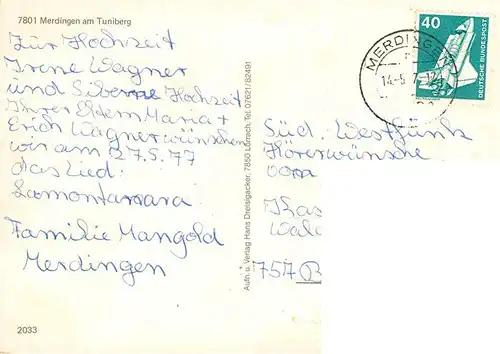 7801 Merdingen am Tuniberg
Zur Hochzeit
Irene Wagner
und Silberne Hochzeit
Ihrer Eltern Maria +
Erich Wagner wünschen
wir am 27.5.77
das Lied:
Lamontanara
Familie Mangold
Merdingen
2033
Aufn. u. Verlag Hans Dreisigacker, 7850 Lörrach, Tel. 07621/82491
MERDINGEN
14.-5.7
40
DEUTSCHE BUNDESPOST
Süd. Westfunk
Hörerwünsche
vom
757 B